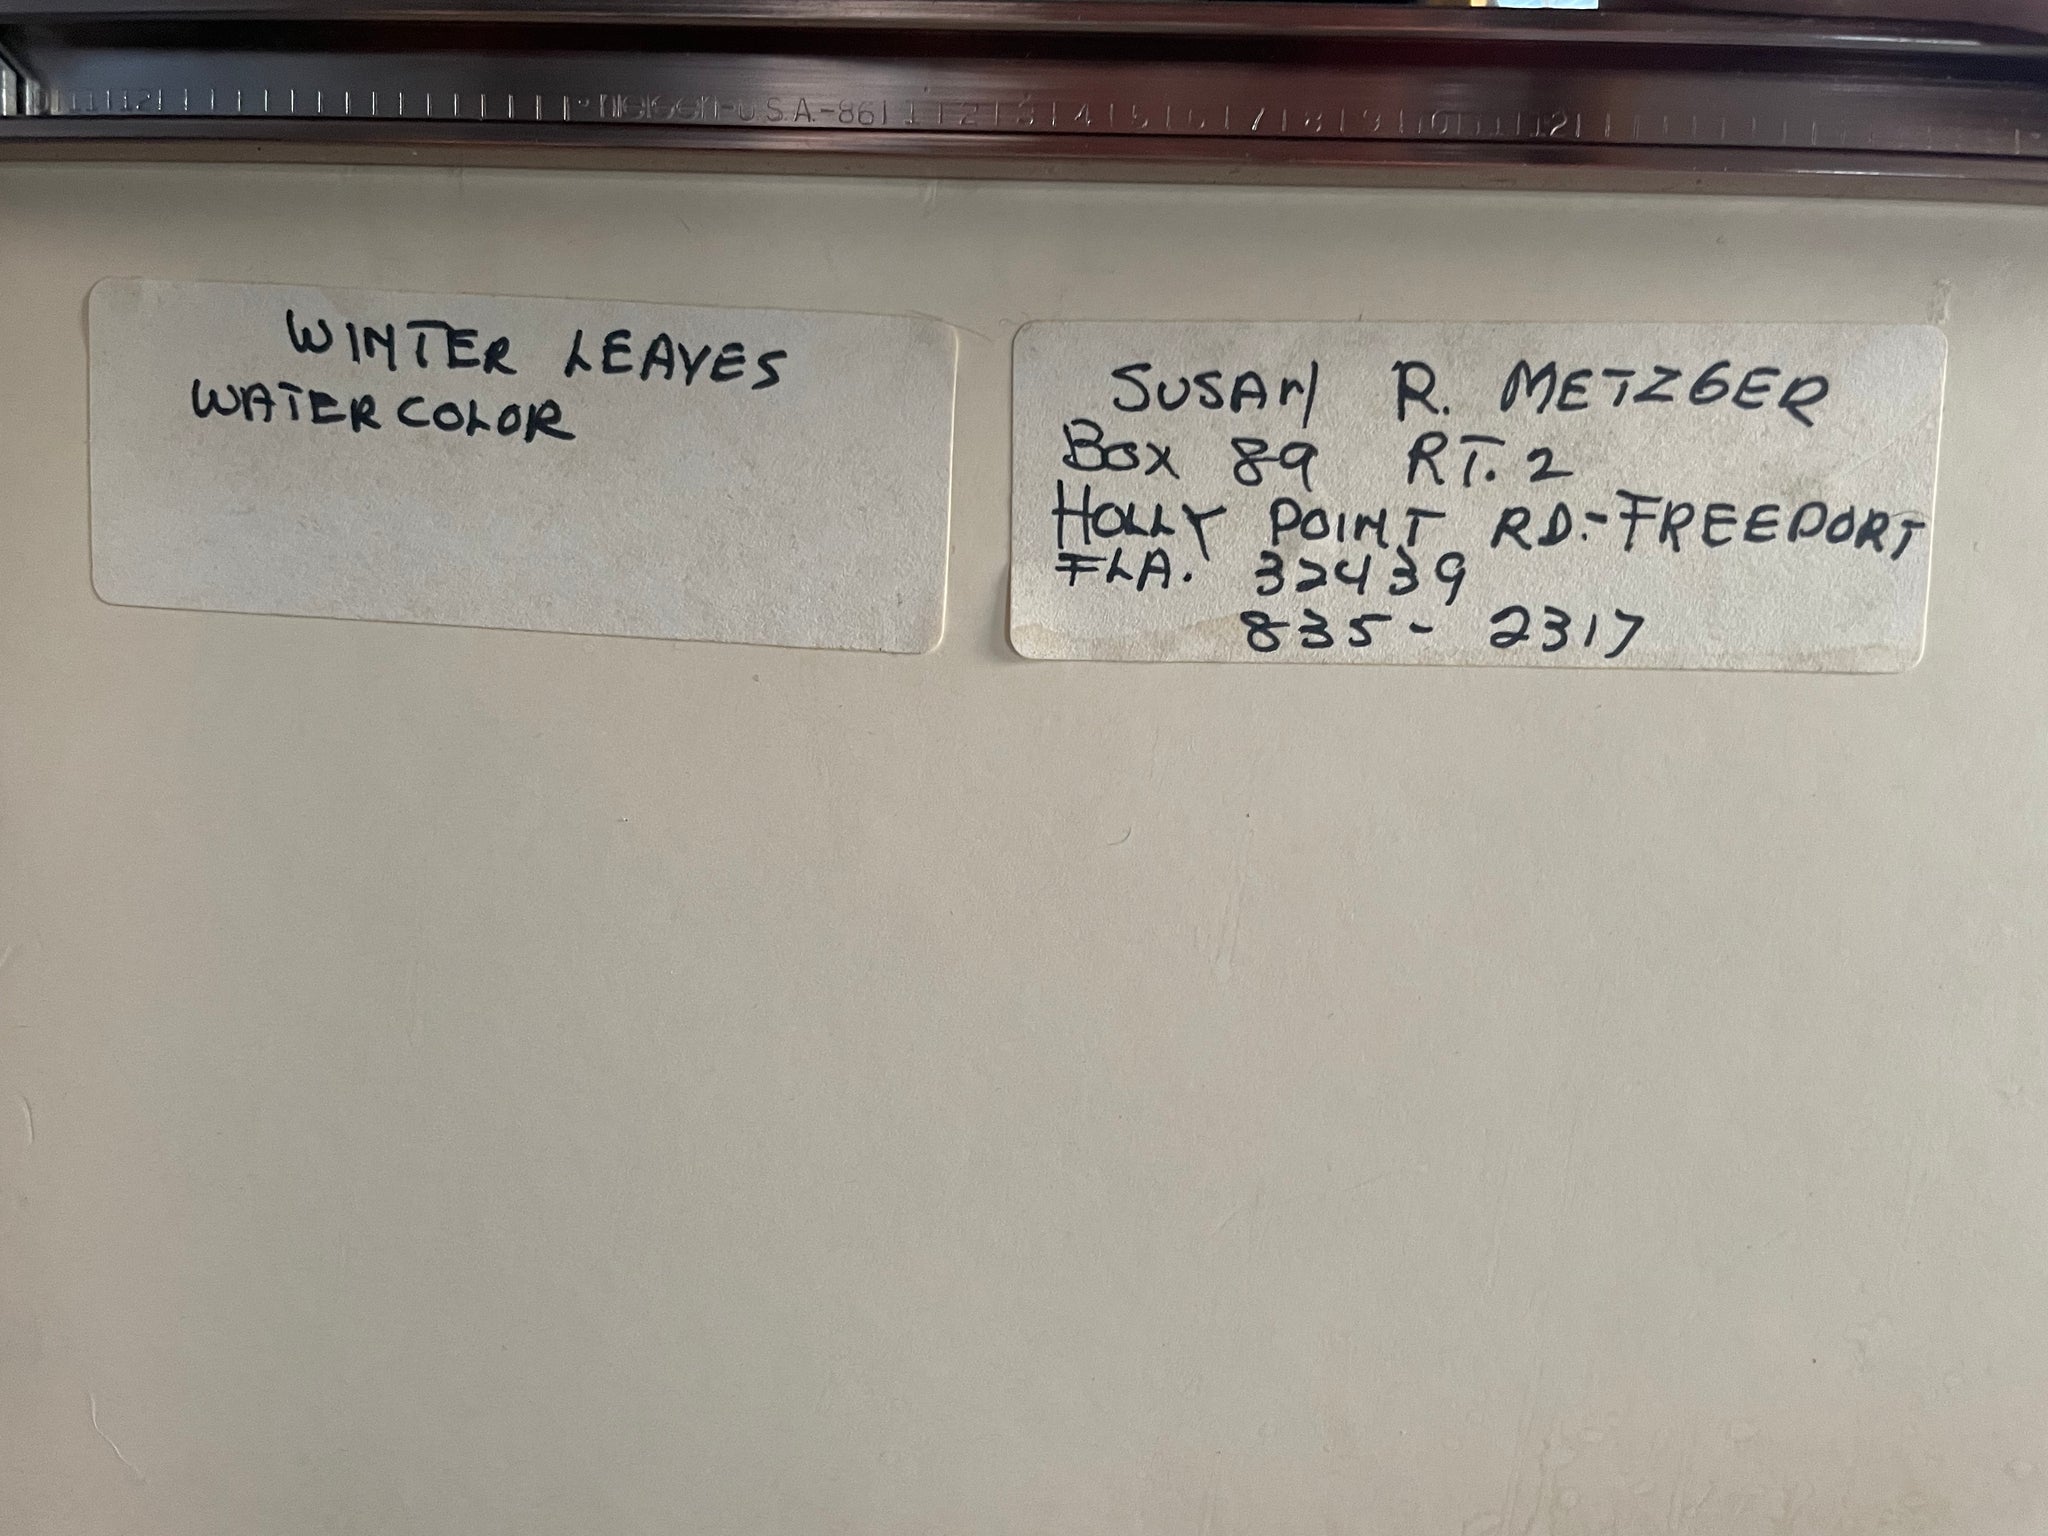 1112 nielsen-U.S.A.-86 1 2 3 4 5 6 7 8 9 10 11 12
WINTER LEAVES
WATERCOLOR
SUSAN R. METZGER
Box 89 RT. 2
HOLLY POINT RD.-FREEPORT
FLA. 32439
835- 2317